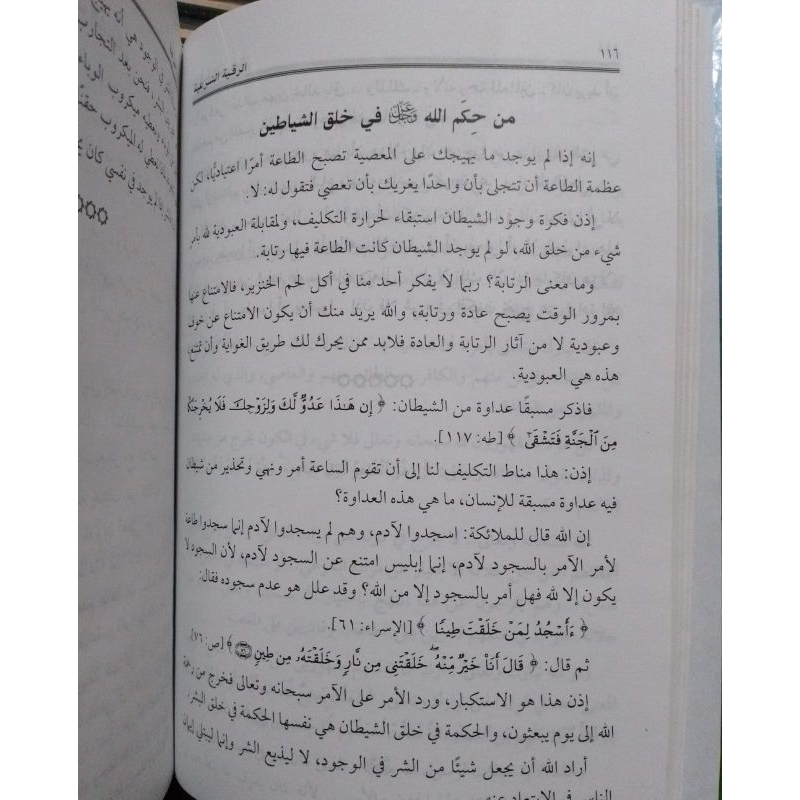 ١١٦
الرقية الشرعية
من حِكَم الله ﷿ في خلق الشياطين
إنه إذا لم يوجد ما يهيجك على المعصية تصبح الطاعة أمرًا اعتياديًا، لكن
عظمة الطاعة أن تتجلى بأن واحدًا يغريك بأن تعصي فتقول له: لا.
إذن فكرة وجود الشيطان استبقاء لحرارة التكليف، ولمقابلة العبودية لله بأمر
شيء من خلق الله، لو لم يوجد الشيطان كانت الطاعة فيها رتابة.
وما معنى الرتابة؟ ربما لا يفكر أحد منا في أكل لحم الخنزير، فالامتناع عنها
بمرور الوقت يصبح عادة ورتابة، والله يريد منك أن يكون الامتناع عن خوف
وعبودية لا من آثار الرتابة والعادة فلابد ممن يحرك لك طريق الغواية وأن تمتنع،
هذه هي العبودية.
فاذكر مسبقًا عداوة من الشيطان: ﴿ إِن هَـٰذَا عَدُوٌّ لَّكَ وَلِزَوْجِكَ فَلَا يُخْرِجَنَّكُمَا
مِنَ ٱلْجَنَّةِ فَتَشْقَىٰٓ ﴾ [طه: ١١٧].
إذن: هذا مناط التكليف لنا إلى أن تقوم الساعة أمر ونهي وتحذير من شيطان
فيه عداوة مسبقة للإنسان، ما هي هذه العداوة؟
إن الله قال للملائكة: اسجدوا لآدم، وهم لم يسجدوا لآدم إنما سجدوا طاعة
لأمر الآمر بالسجود لآدم، إنما إبليس امتنع عن السجود لآدم، لأن السجود لا
يكون إلا لله فهل أمر بالسجود إلا من الله؟ وقد علل هو عدم سجوده فقال:
﴿ ءَأَسْجُدُ لِمَنْ خَلَقْتَ طِينًا ﴾ [الإسراء: ٦١].
ثم قال: ﴿ قَالَ أَنَا۠ خَيْرٌ مِّنْهُ ۖ خَلَقْتَنِى مِن نَّارٍ وَخَلَقْتَهُۥ مِن طِينٍ ﴿٧٦﴾ ﴾ [ص: ٧٦].
إذن هذا هو الاستكبار، ورد الأمر على الآمر سبحانه وتعالى فخرج من رحمة
الله إلى يوم يبعثون، والحكمة في خلق الشيطان هي نفسها الحكمة في خلق البشر.
أراد الله أن يجعل شيئًا من الشر في الوجود، لا ليذيع الشر وإنما ليبتلي إيمان
الناس في الابتعاد عنه